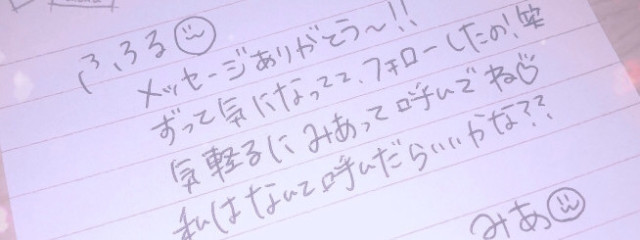 ふふる
メッセージありがとう〜!!
ずって気になってて、フォローしたの!笑
気軽るにみあって呼んでね♡
私はなんて呼んだらいいかな??
みあ